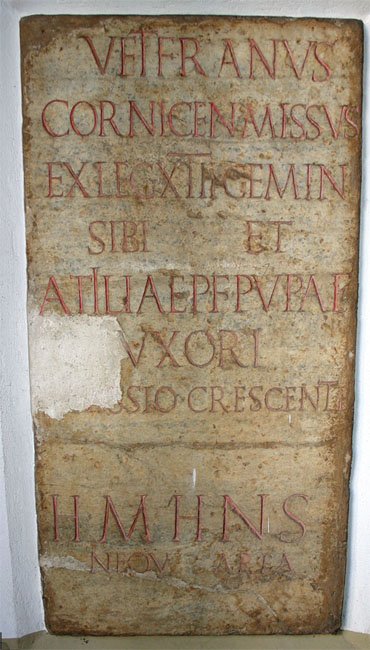 VETERANVS
CORNICEN MISSVS
EX LEG XIII GEMIN
SIBI ET
ATILIAE P F PVPAE
VXORI
CRESCENTI
H M H N S